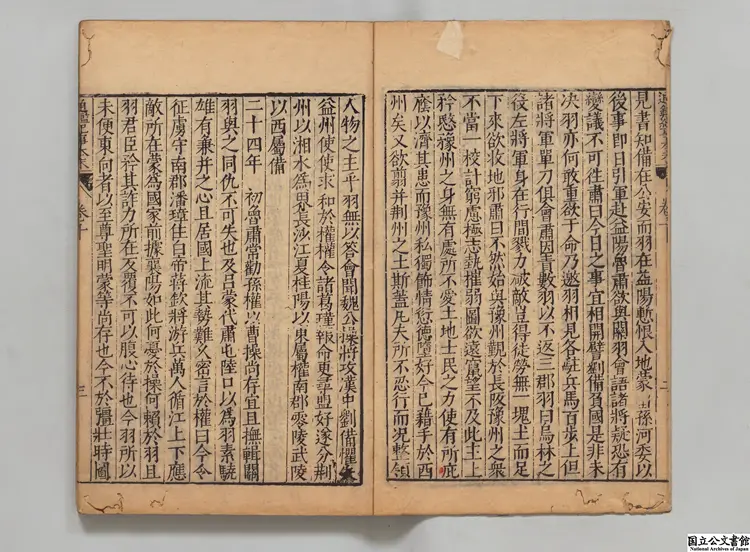 通鑑 卷十 二
見書知備在公安而羽在益陽慙恨入地蒙 孫河委以
後事即日引軍赴益陽魯肅欲與關羽會語諸將疑恐有
變議不可徃肅曰今日之事宜相開譬劉備負國是非未
決羽亦何敢重欲于命乃邀羽相見各駐兵馬百步上但
諸將軍單刀俱會肅因責數羽以不返三郡羽曰烏林之
役左將軍身在行間戮力破敵豈得徒勞無一塊土而足
下來欲收地邪肅曰不然始與豫州觀於長阪豫州之衆
不當一校計窮慮極志埶摧弱圖欲遠竄望不及此主上
矜愍豫州之身無有處所不愛土地士民之力使有所庇
廕以濟其患而豫州私獨飾情愆德墮好今已藉手於西
州矣又欲翦并荆州之土斯蓋凡夫所不忍行而况整領
人物之主乎羽無以答會聞魏公操將攻漢中劉備懼失
益州使使求和於權權令諸葛瑾報命更尋盟好遂分荆
州以湘水為界長沙江夏桂陽以東屬權南郡零陵武陵
以西屬備
二十四年 初魯肅常勸孫權以曹操尚存宜且撫輯關
羽與之同仇不可失也及吕蒙代肅屯陸口以為羽素驍
雄有兼并之心且居國上流其勢難久密言於權曰今令
征虜守南郡潘璋住白帝蔣欽將游兵萬人循江上下應
敵所在蒙為國家前據襄陽如此何憂於操何賴於羽且
羽君臣矜其詐力所在反覆不可以腹心待也今羽所以
未便東向者以至尊聖明蒙等尚存也今不於彊壯時圖
通鑑紀事本末 卷十 三
国立公文書館
National Archives of Japan